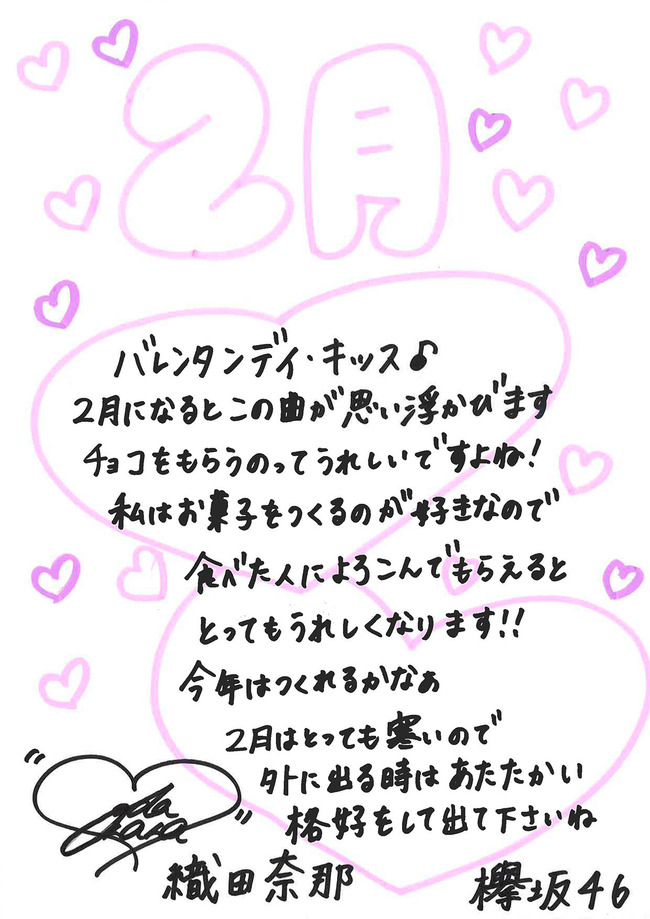 2月
バレンタンデイ・キッス♪
2月になるとこの曲が思い浮かびます
チョコをもらうのってうれしいですよね!
私はお菓子をつくるのが好きなので
食べた人によろこんでもらえると
とってもうれしくなります!!
今年はつくれるかなぁ
2月はとっても寒いので
外に出る時はあたたかい
格好をして出て下さいね
Oda Nana
織田奈那
欅坂46